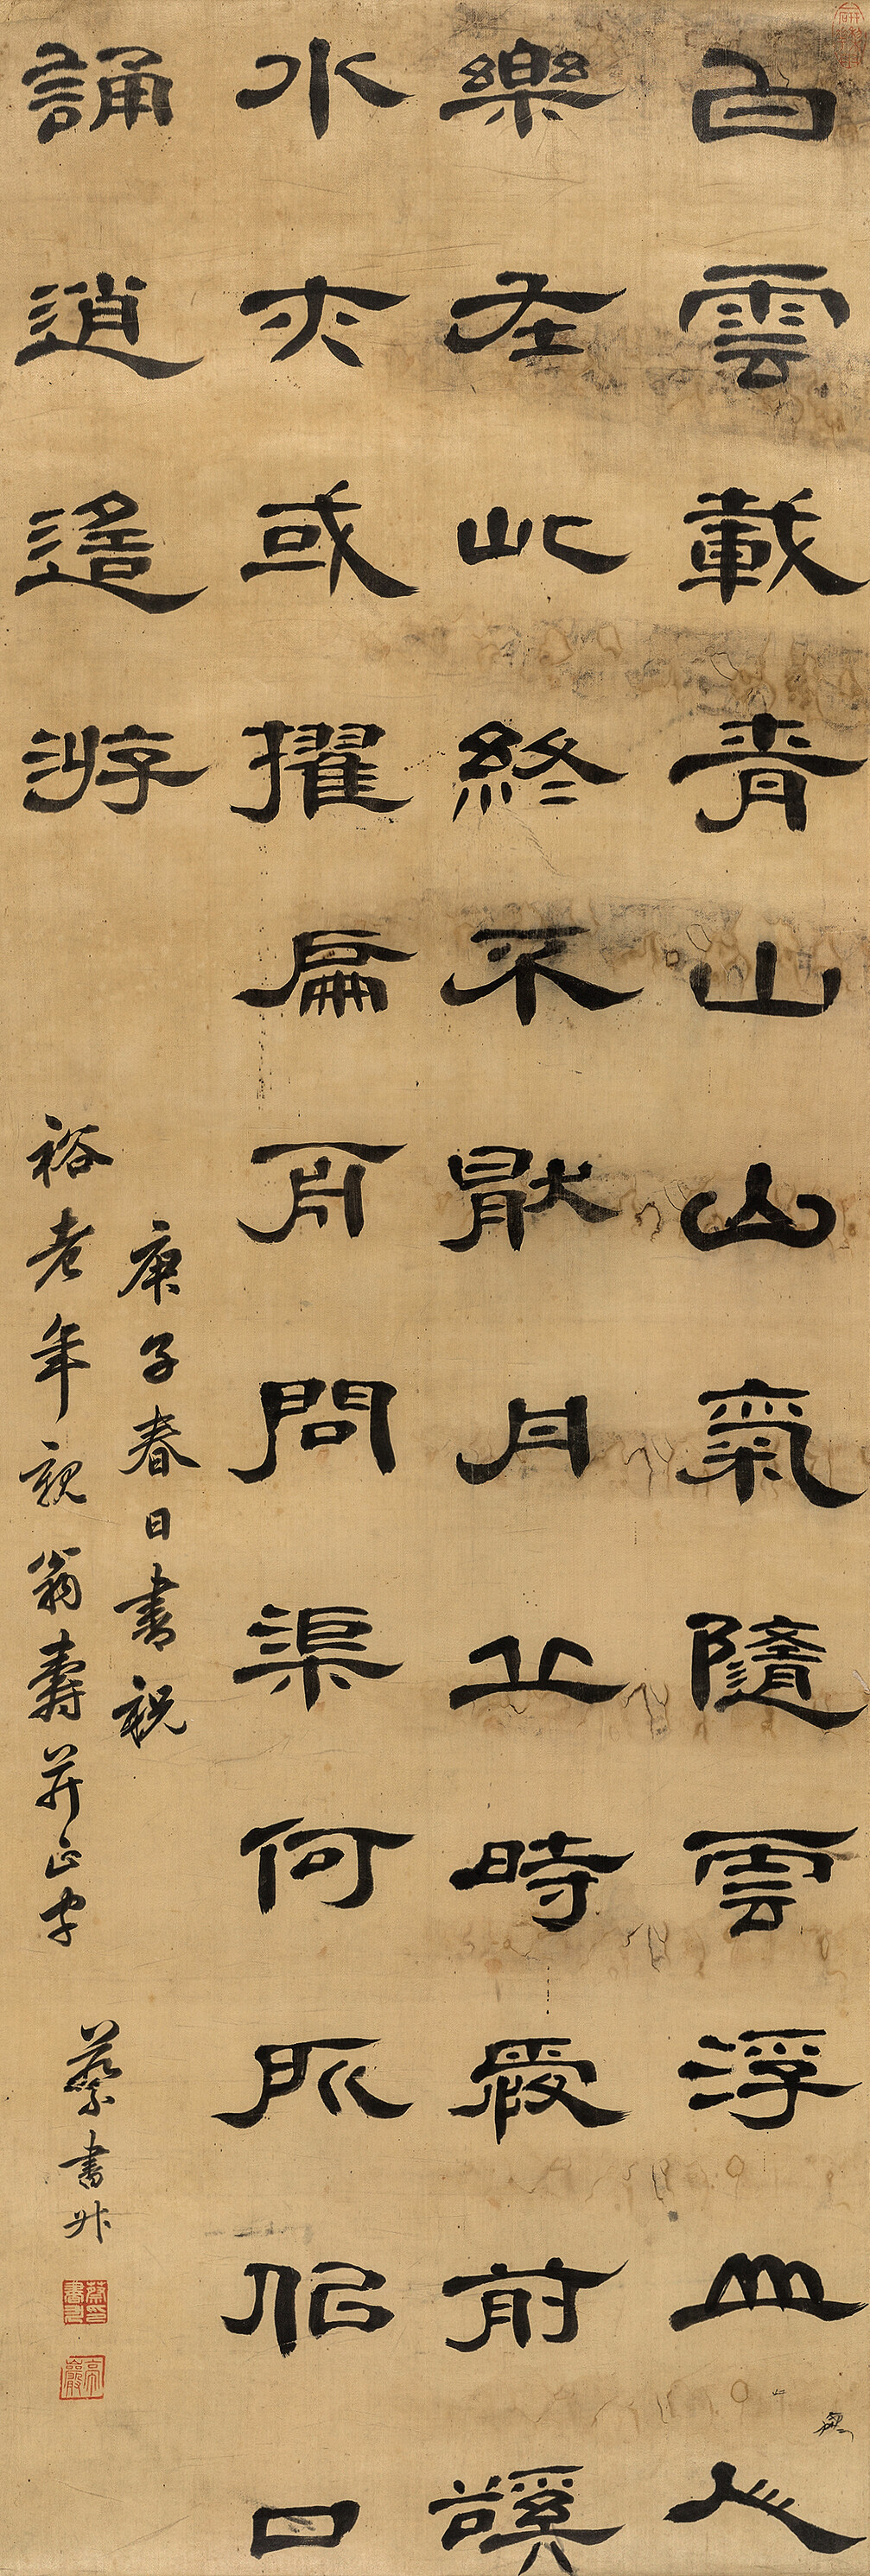 白雲載青山山氣隨雲浮山人
樂在此終不猒月時前谿
水亦或擢扁舟問渠何所佀口
誦逍遙游
庚子春日書祝
裕老年親翁壽并正字
蔡書升